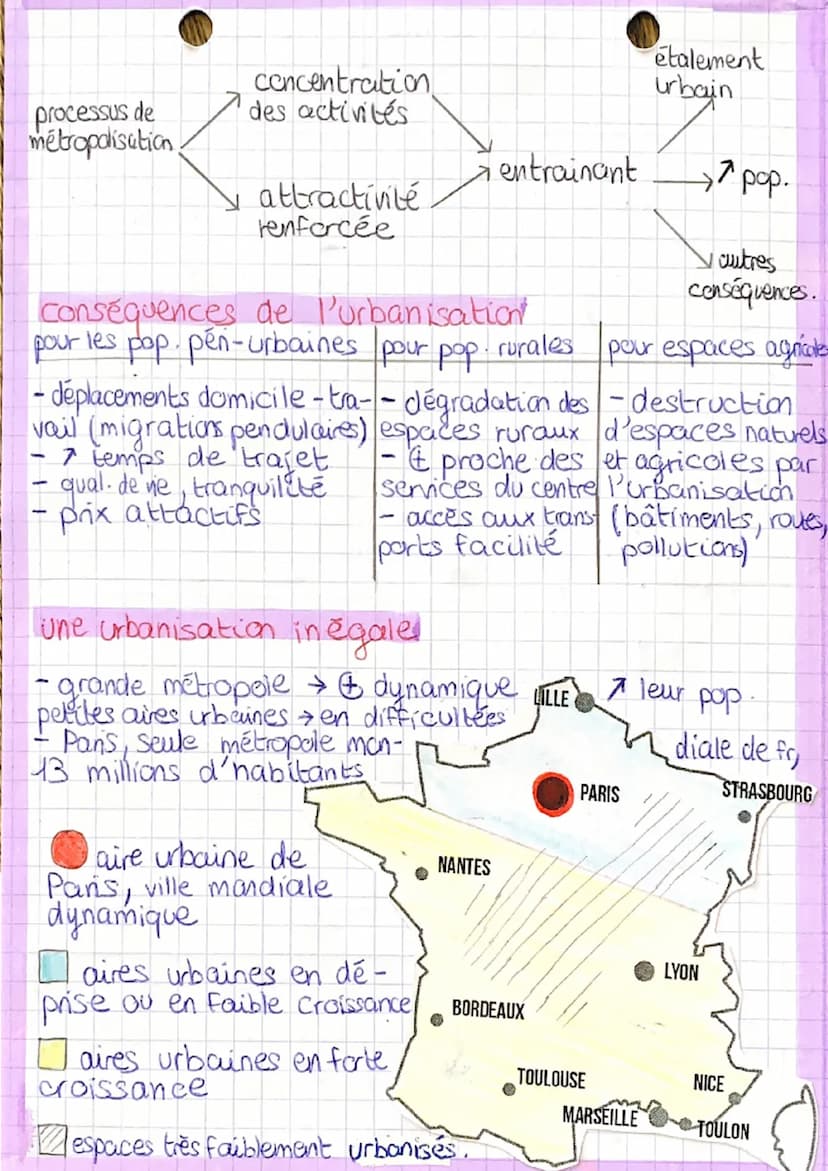 processus de
métropolisation
concentration
des activités
attractivité
renforcée
entrainant
étalement
urbain
↗ pop.
autres
conséquences.
conséquences de l'urbanisation
pour les pop. péri-urbaines
- déplacements domicile - tra-
vail (migrations pendulaires)
- ↗ temps de trajet
- qual. de vie, tranquilité
- prix attactifs
pour pop. rurales
- dégradation des
espaces ruraux
- ⊕ proche des
services du centre
- accès aux trans
ports facilité
pour espaces agricoles
- destruction
d'espaces naturels
et agricoles par
l'urbanisation
(bâtiments, roues,
pollutions)
une urbanisation inégale
- grande métropole → ⊕ dynamique ↗ leur pop.
petites aires urbaines → en difficultées
- Paris, seule métropole mon- diale de fr,
13 millions d'habitants
LILLE
PARIS
STRASBOURG
NANTES
LYON
BORDEAUX
TOULOUSE
NICE
MARSEILLE
TOULON
aire urbaine de
Paris, ville mondiale
dynamique
aires urbaines en dé-
prise ou en faible croissance
aires urbaines en forte
croissance
espaces très faiblement urbanisés.